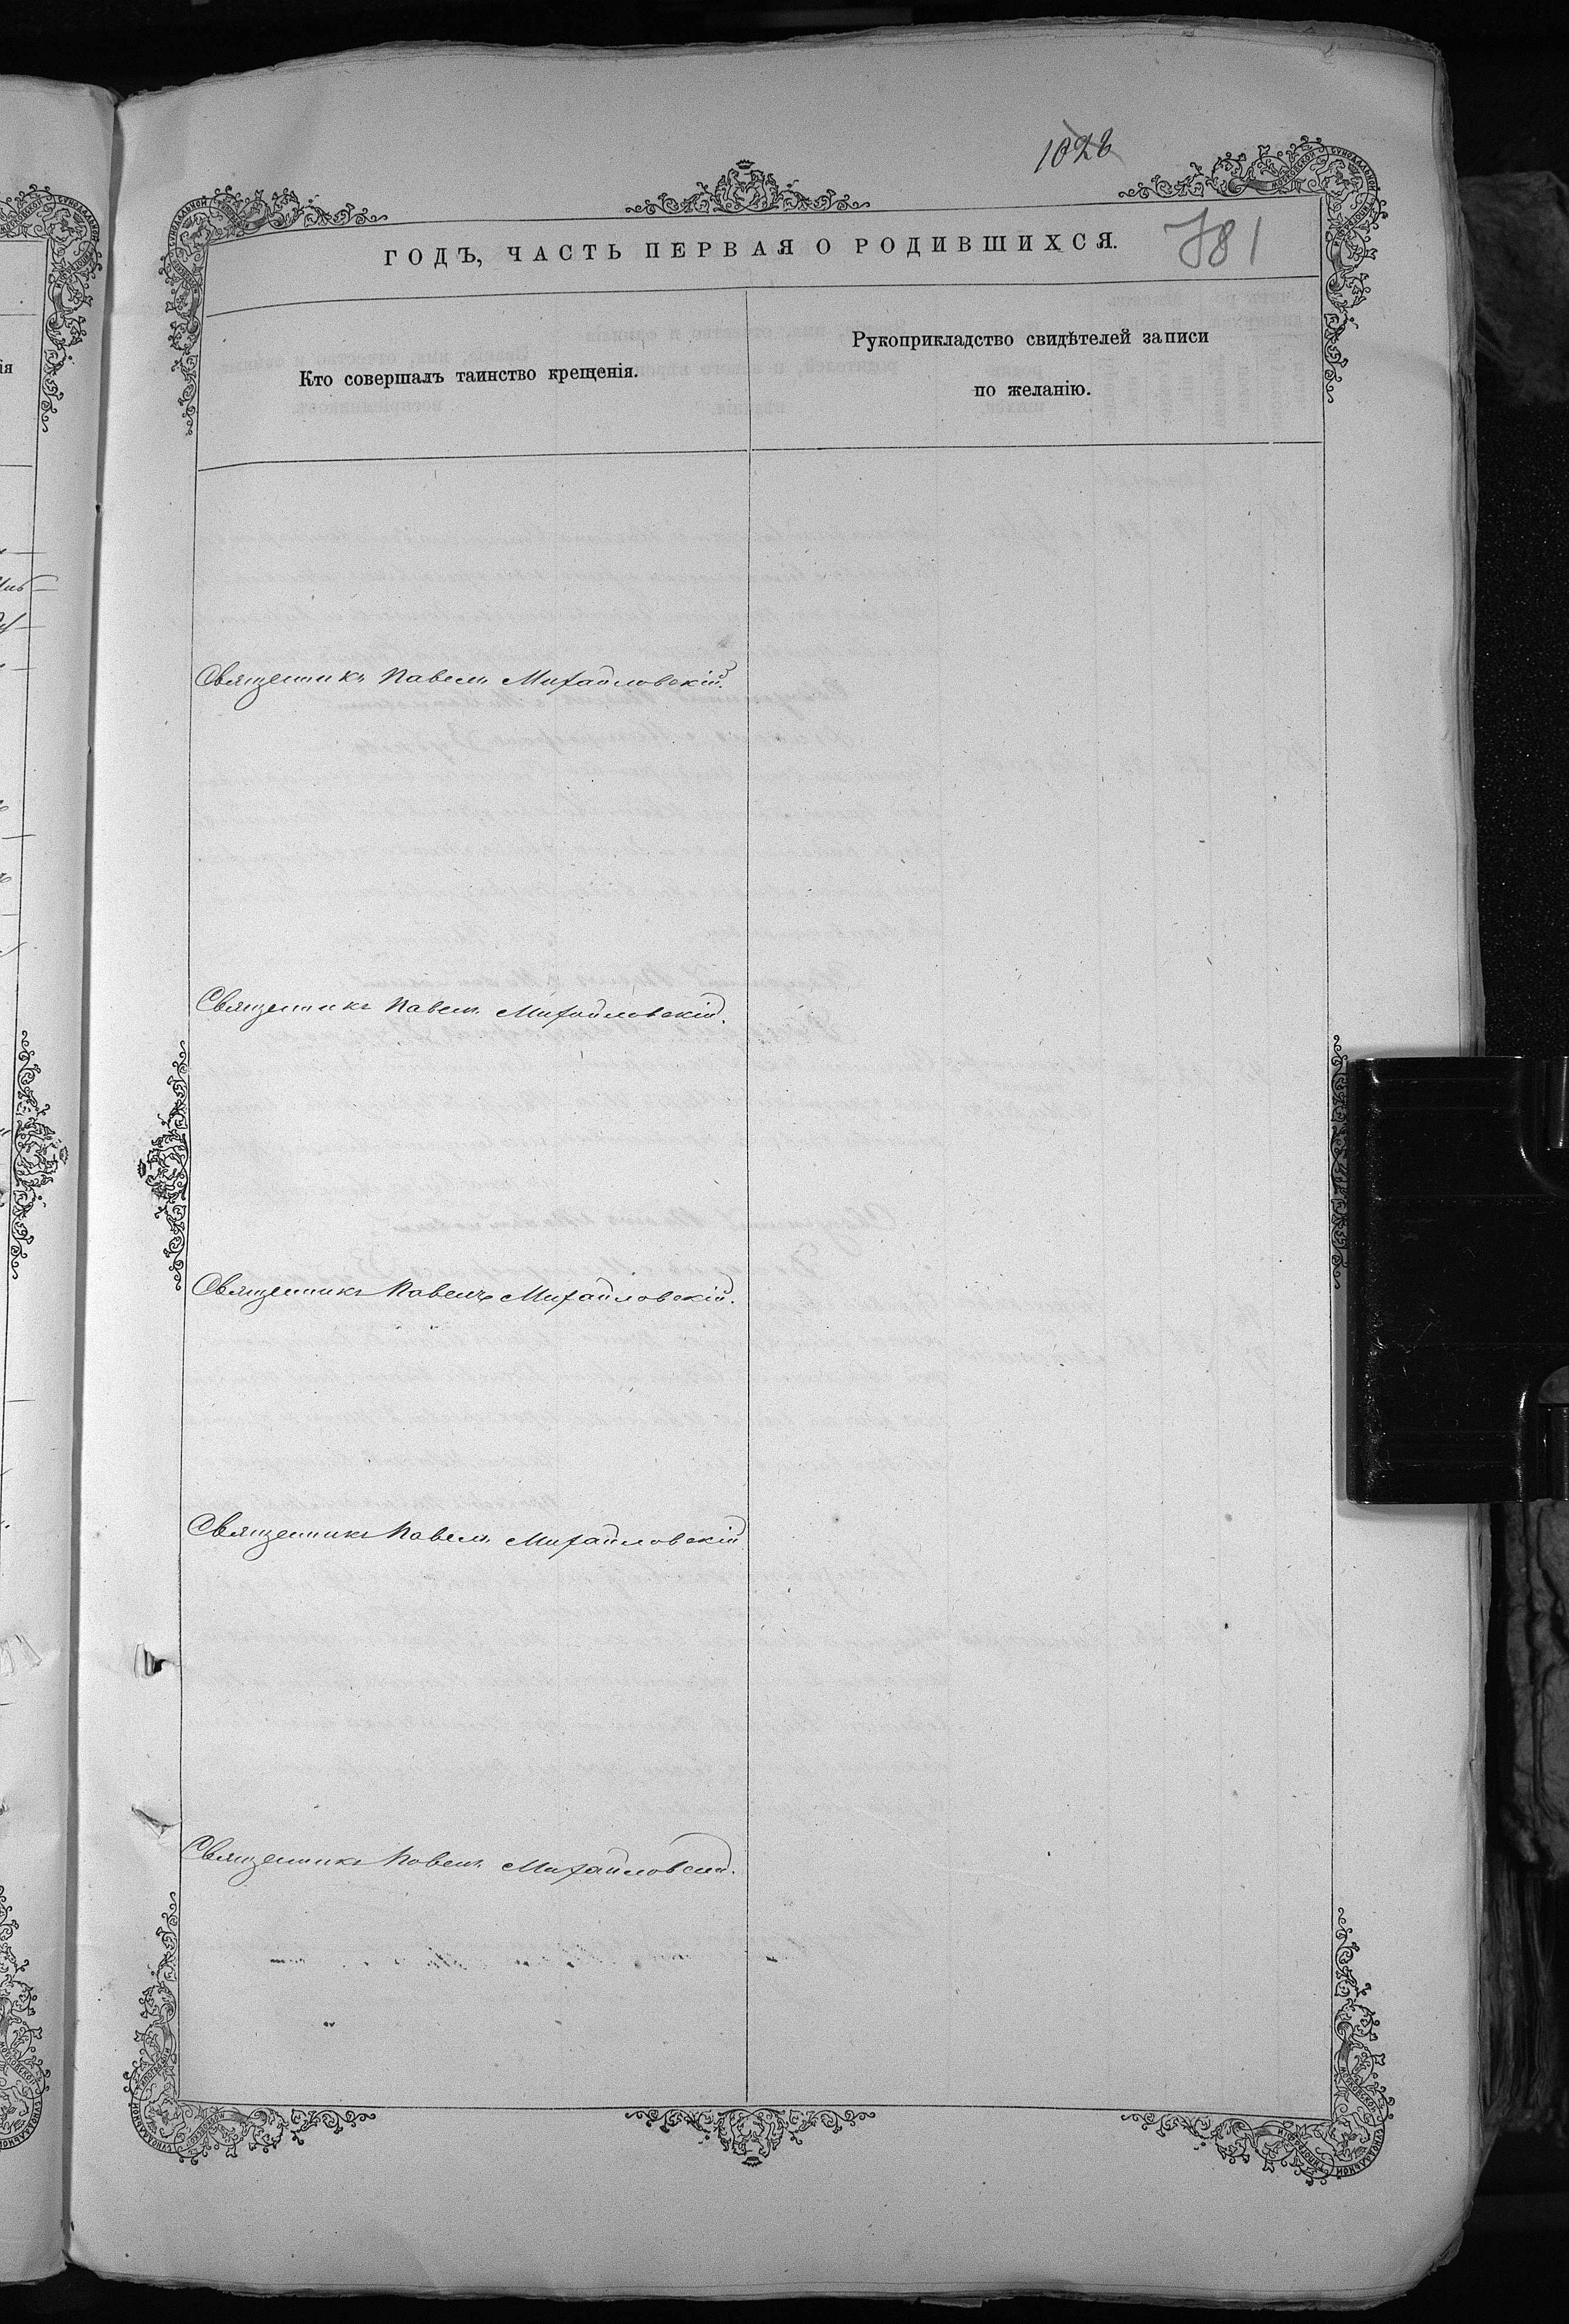 1028
781
ГОДЪ, ЧАСТЬ ПЕРВАЯ О РОДИВШИХСЯ.
Кто совершалъ таинство крещенія.
Рукоприкладство свидѣтелей записи
по желанію.
Священникъ Павелъ Михайловскій.
Священникъ Павелъ Михайловскій.
Священникъ Павелъ Михайловскій.
Священникъ Павелъ Михайловскій
Священникъ Павелъ Михайловскій.